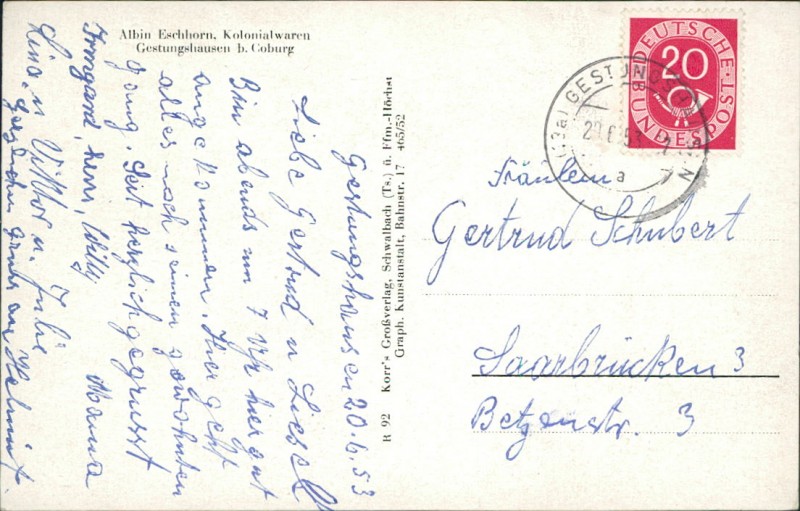 Albin Eschhorn, Kolonialwaren
Gestungshausen b. Coburg
Gestungshausen 20.6.53
Liebe Gertrud u Liesel
Bin abends um 7 Uhr hier gut
angekommen. Hier geht
alles noch seinen gewohnten
gang Seit herzlich gegrüsst
Mama
Irmgard, Willy
Lina, u Viktor u. Julie
Gruß an Helmut.
R 92 Korr's Großverlag, Schwalbach (Ts.) ü. Ffm.-Höchst
Graph. Kunstanstalt, Bahnstr. 17 465/52
DEUTSCHE
BUNDESPOST
20
(13a) GESTUNGSH
20.6.53
a
Fräulein
Gertrud Schubert
Saarbrücken 3
Betzenstr. 3